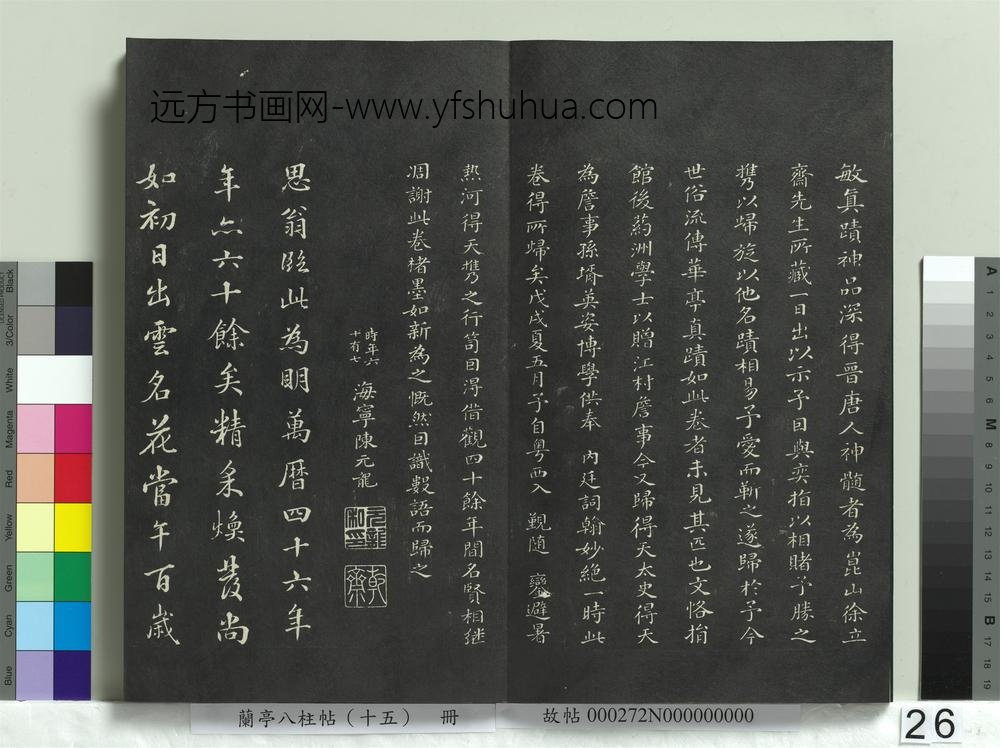 远方书画网-www.yfshuhua.com
敏真蹟神品深得晉唐人神髓者為崑山徐立
齋先生所藏一日出以示予因與奕指以相賭予勝之
攜以歸旋以他名蹟相易予愛而靳之遂歸於予今
世俗流傳華亭真蹟如此卷者未見其匹也文恪捐
館後葯洲學士以贈江村詹事今又歸得天太史得天
為詹事孫壻英安博學供奉 內廷詞翰妙絕一時此
卷得所歸矣戊戌夏五月予自粵西入 覲随 鑾避暑
热河得天攜之行笥因得借觀四十餘年間名賢相继
凋謝此卷楮墨如新為之慨然因識數語而歸之
時年六
十有七
海寧陳元龍
元龍
乾齋
思翁臨此為明萬曆四十六年
年亦六十餘矣精采煥發尚
如初日出雲名花當午百歲
Black
3/Color
White
Magenta
Red
Yellow
Green
Cyan
Blue
A
1
2
3
4
5
6
M
8
9
10
11
12
13
14
15
B
17
18
19
蘭亭八柱帖（十五） 冊
故帖 000272N000000000
26